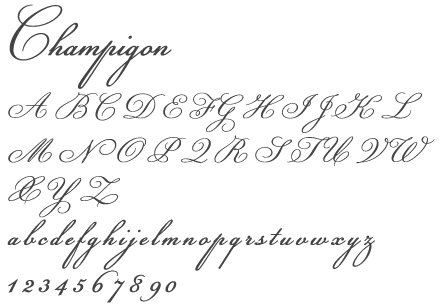 Champigon
A B C D E F G H I J K L
M N O P Q R S T U V W
X Y Z
abcdefghijelmnopqrstuvwxyz
1234567890